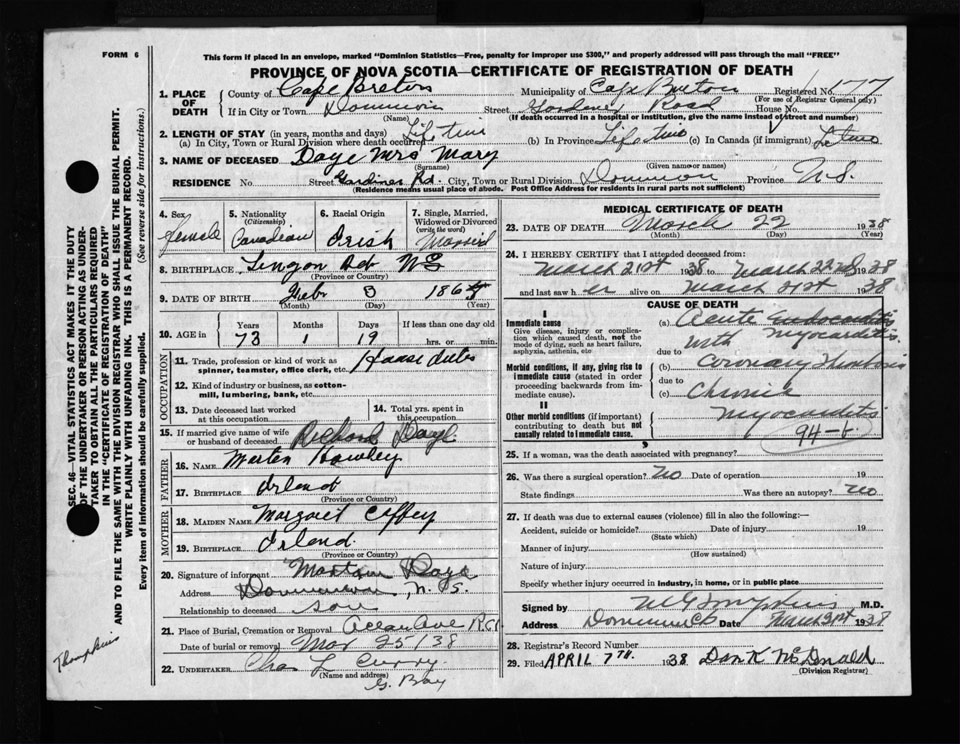 FORM 6
This form if placed in an envelope, marked "Dominion Statistics—Free, penalty for improper use $300," and properly addressed will pass through the mail "FREE"
PROVINCE OF NOVA SCOTIA—CERTIFICATE OF REGISTRATION OF DEATH
SEC. 46—VITAL STATISTICS ACT MAKES IT THE DUTY
OF THE UNDERTAKER OR PERSON ACTING AS UNDER-
TAKER TO OBTAIN ALL THE PARTICULARS REQUIRED
IN THE "CERTIFICATE OF REGISTRATION OF DEATH"
AND TO FILE THE SAME WITH THE DIVISION REGISTRAR WHO SHALL ISSUE THE BURIAL PERMIT.
WRITE PLAINLY WITH UNFADING INK. THIS IS A PERMANENT RECORD.
Every item of information should be carefully supplied. (See reverse side for instructions.)
1. PLACE OF DEATH County of Cape Breton Municipality of Cape Breton Registered No. 177
(For use of Registrar General only)
If in City or Town Dominion Street Road House No.
(Name) (If death occurred in a hospital or institution, give the name instead of street and number)
2. LENGTH OF STAY (in years, months and days)
(a) In City, Town or Rural Division where death occurred Life time (b) In Province Life time (c) In Canada (if immigrant)
3. NAME OF DECEASED Daye Mrs Mary
(Surname) (Given name or names)
RESIDENCE No. Street Gardiner Rd. City, Town or Rural Division Dominion Province N.S.
(Residence means usual place of abode. Post Office Address for residents in rural parts not sufficient)
4. Sex Female
5. Nationality (Citizenship) Canadian
6. Racial Origin Irish
7. Single, Married, Widowed or Divorced (write the word) Married
8. BIRTHPLACE Lingan Rd NS
(Province or Country)
9. DATE OF BIRTH Feb 3 186
(Month) (Day) (Year)
10. AGE in Years Months Days If less than one day
73 1 19 hrs. or min.
OCCUPATION
11. Trade, profession or kind of work as spinner, teamster, office clerk, etc. House duties
12. Kind of industry or business, as cotton-mill, lumbering, bank, etc.
13. Date deceased last worked at this occupation
14. Total yrs. spent in this occupation
15. If married give name of wife or husband of deceased Richard Daye
FATHER
16. NAME Martin Hawley
17. BIRTHPLACE Irland
(Province or Country)
MOTHER
18. MAIDEN NAME Margaret Caffey
19. BIRTHPLACE Irland.
(Province or Country)
20. Signature of informant Daye
Address Dominion, N. S.
Relationship to deceased son
21. Place of Burial, Cremation or Removal
Date of burial or removal Mar 25/38
22. UNDERTAKER Chas L Curry
(Name and address)
G. Bay
Thompkins
MEDICAL CERTIFICATE OF DEATH
23. DATE OF DEATH March 22 1938
(Month) (Day) (Year)
24. I HEREBY CERTIFY that I attended deceased from:
March 21st 1938 to March 22nd 1938
and last saw her alive on March 21st 1938
CAUSE OF DEATH
I
Immediate cause
Give disease, injury or complication which caused death, not the mode of dying, such as heart failure, asphyxia, asthenia, etc
(a) Acute Endocarditis
with Myocarditis.
due to
Morbid conditions, if any, giving rise to immediate cause (stated in order proceeding backwards from immediate cause).
(b) Coronary Thrombosis
due to
(c) Chronic
Myocarditis
II
Other morbid conditions (if important) contributing to death but not causally related to immediate cause.
94-b.
25. If a woman, was the death associated with pregnancy?
26. Was there a surgical operation? No Date of operation 19
State findings Was there an autopsy? No
27. If death was due to external causes (violence) fill in also the following:—
Accident, suicide or homicide? Date of injury 19
(State which)
Manner of injury
(How sustained)
Nature of injury
Specify whether injury occurred in industry, in home, or in public place
Signed by M.D.
Address Dominion CB Date March 31st 1938
28. Registrar's Record Number
29. Filed APRIL 7TH. 1938. Dan K McDonald
(Division Registrar)